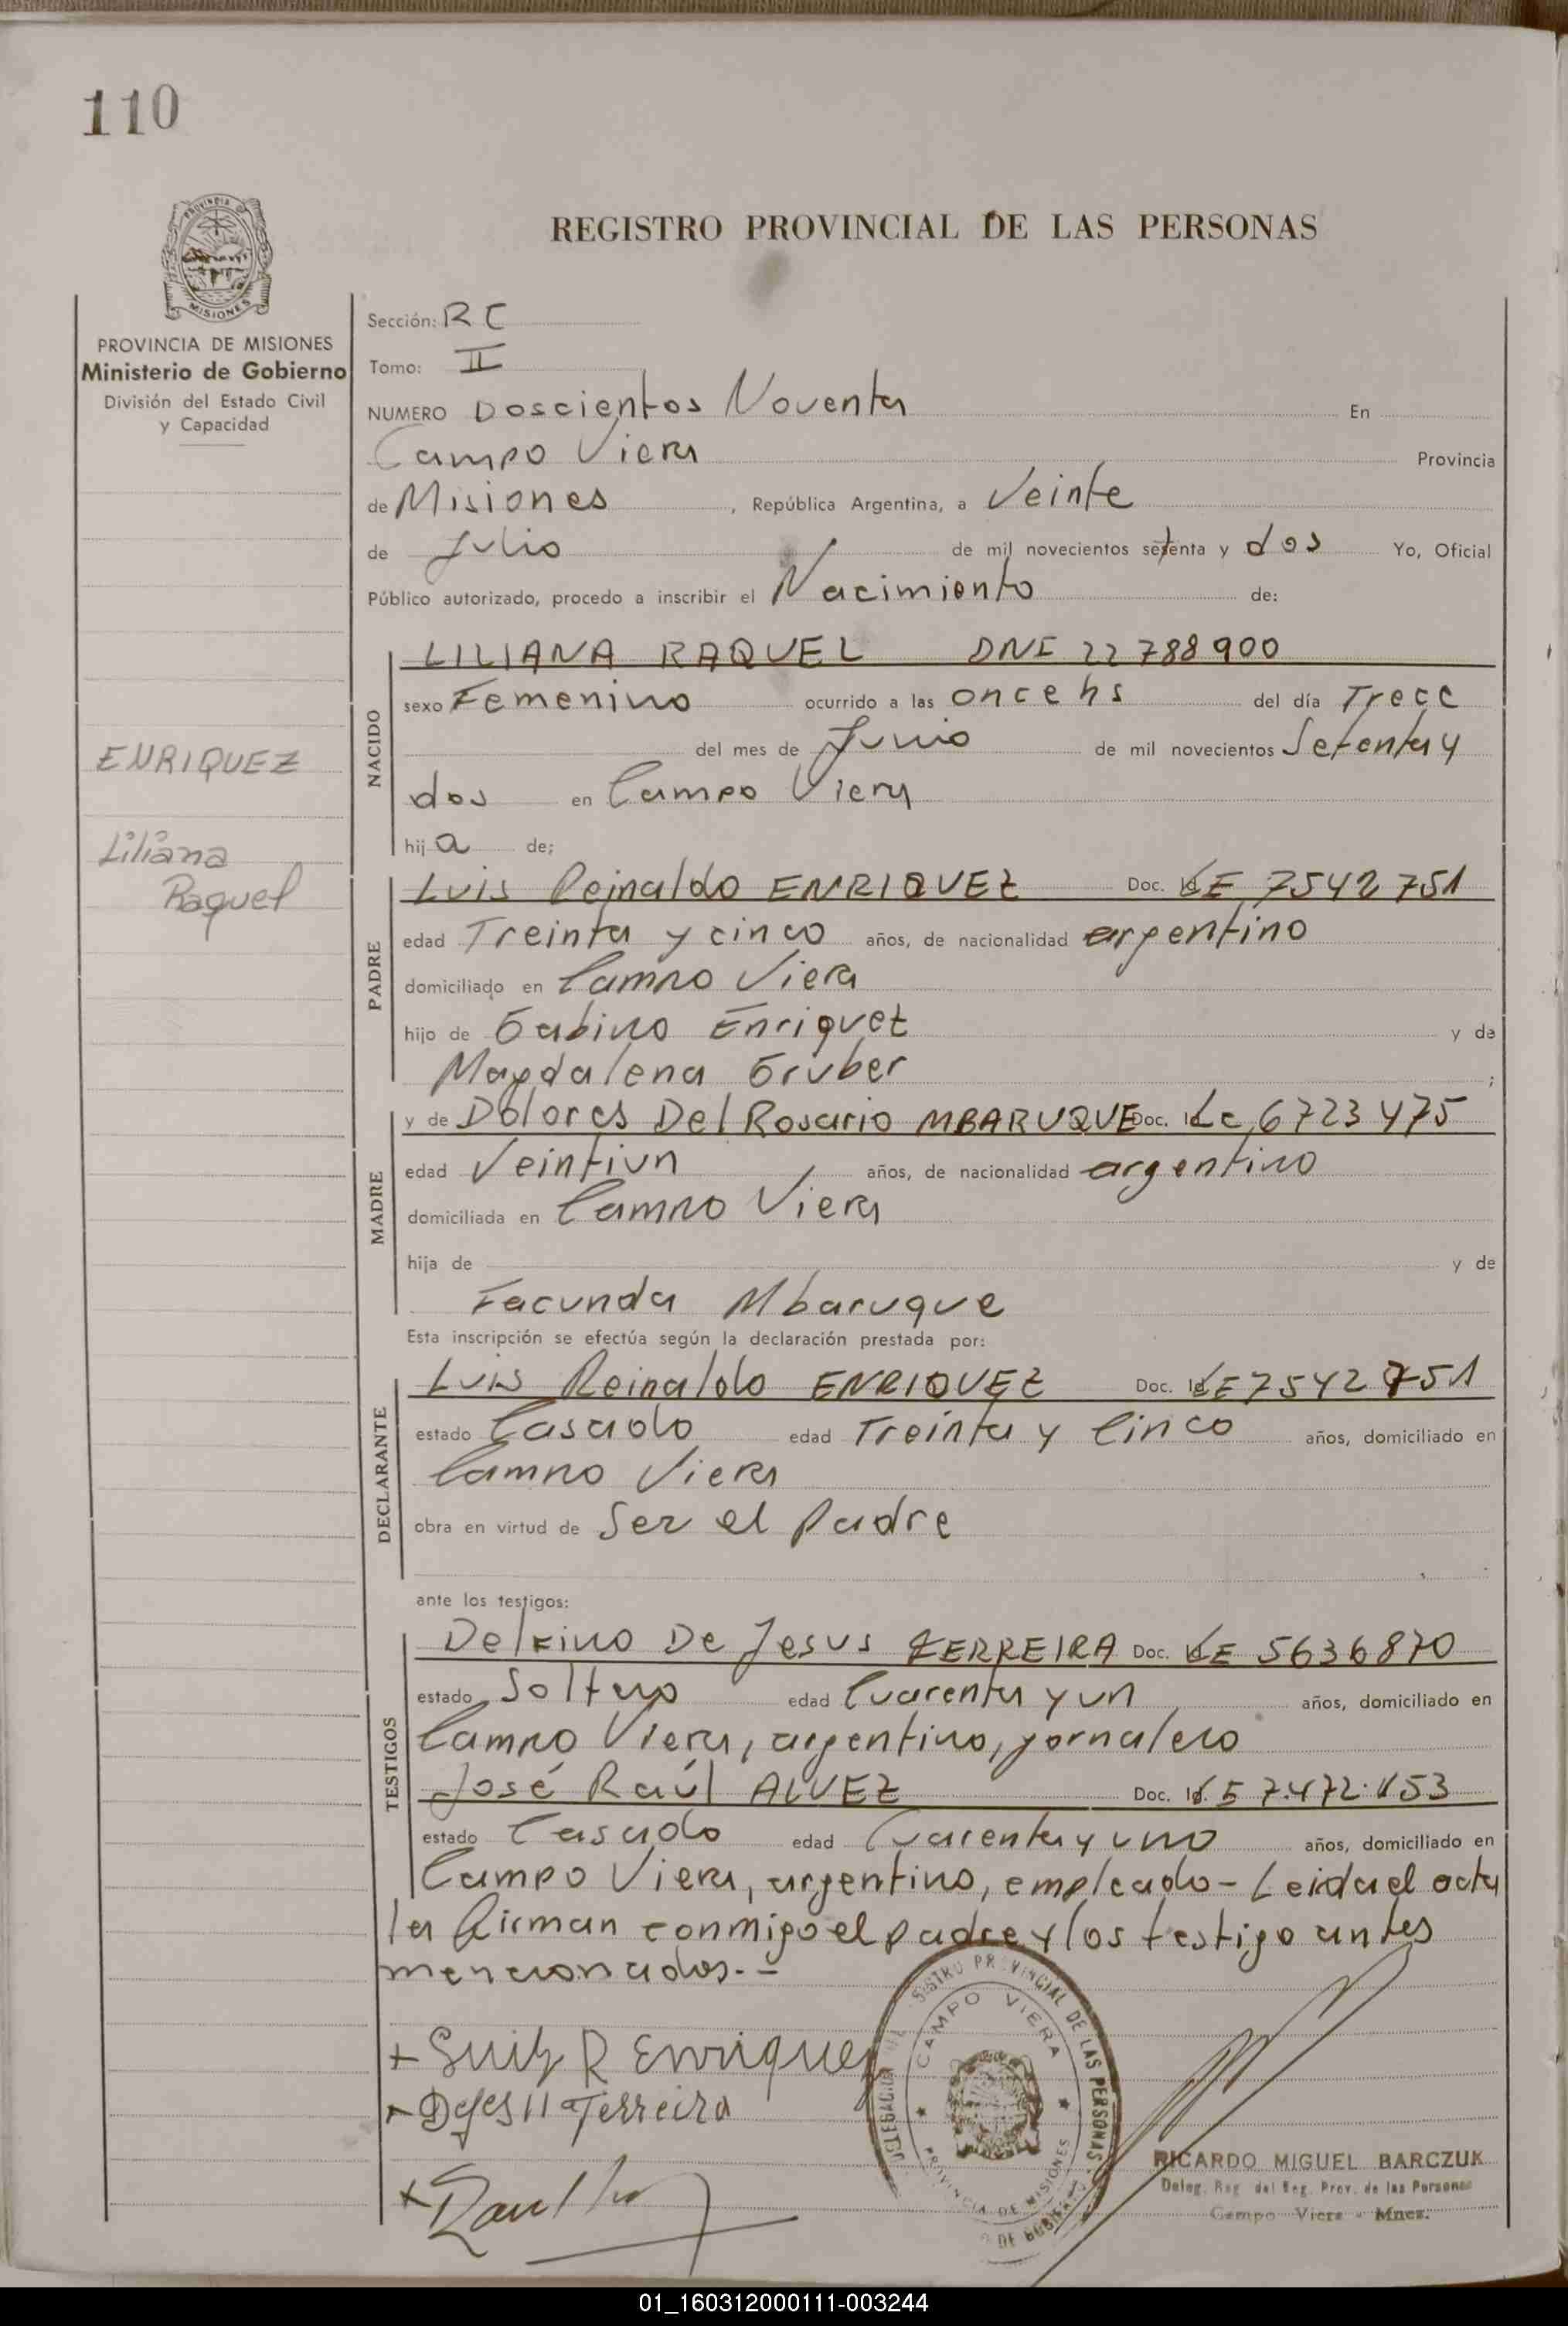 110
PROVINCIA
MISIONES
PROVINCIA DE MISIONES
Ministerio de Gobierno
División del Estado Civil
y Capacidad
ENRIQUEZ
Liliana
Raquel
REGISTRO PROVINCIAL DE LAS PERSONAS
Sección: RC
Tomo: II
NUMERO Doscientos Noventa En
Campo Viera Provincia
de Misiones, República Argentina, a Veinte
de Julio de mil novecientos setenta y dos Yo, Oficial
Público autorizado, procedo a inscribir el Nacimiento de:
NACIDO
LILIANA RAQUEL DNI 22 788 900
sexo Femenino ocurrido a las once hs del día Trece
del mes de Junio de mil novecientos Setenta y
dos en Campo Viera
hija de;
PADRE
Luis Reinaldo ENRIQUEZ Doc. LE 7542751
edad Treinta y cinco años, de nacionalidad argentino
domiciliado en Campo Viera
hijo de Gabino Enriquez y de
Magdalena Gruber ;
MADRE
y de Dolores Del Rosario MBARUQUE Doc. Lc 6723475
edad Veintiun años, de nacionalidad argentino
domiciliada en Campo Viera
hija de y de
Facunda Mbaruque
Esta inscripción se efectúa según la declaración prestada por:
DECLARANTE
Luis Reinaldo ENRIQUEZ Doc. Id LE 7542751
estado Casado edad Treinta y Cinco años, domiciliado en
Campo Viera
obra en virtud de Ser el padre
ante los testigos:
TESTIGOS
Delfino De Jesus FERREIRA Doc. LE 5636870
estado Soltero edad Cuarenta y un años, domiciliado en
Campo Viera, argentino, jornalero
José Raúl ALVEZ Doc. Id. 7.472.153
estado Casado edad Cuarenta y uno años, domiciliado en
Campo Viera, argentino, empleado - Leida el acta
la firman conmigo el padre y los testigo antes
mencionados.-
+ Luis R Enriquez
+ Ferreira
+ Raul
REGISTRO PROVINCIAL DE LAS PERSONAS
CAMPO VIERA
PROVINCIA DE MISIONES
RICARDO MIGUEL BARCZUK
Deleg. Reg. del Reg. Prov. de las Personas
Campo Viera - Mnes.
01_160312000111-003244